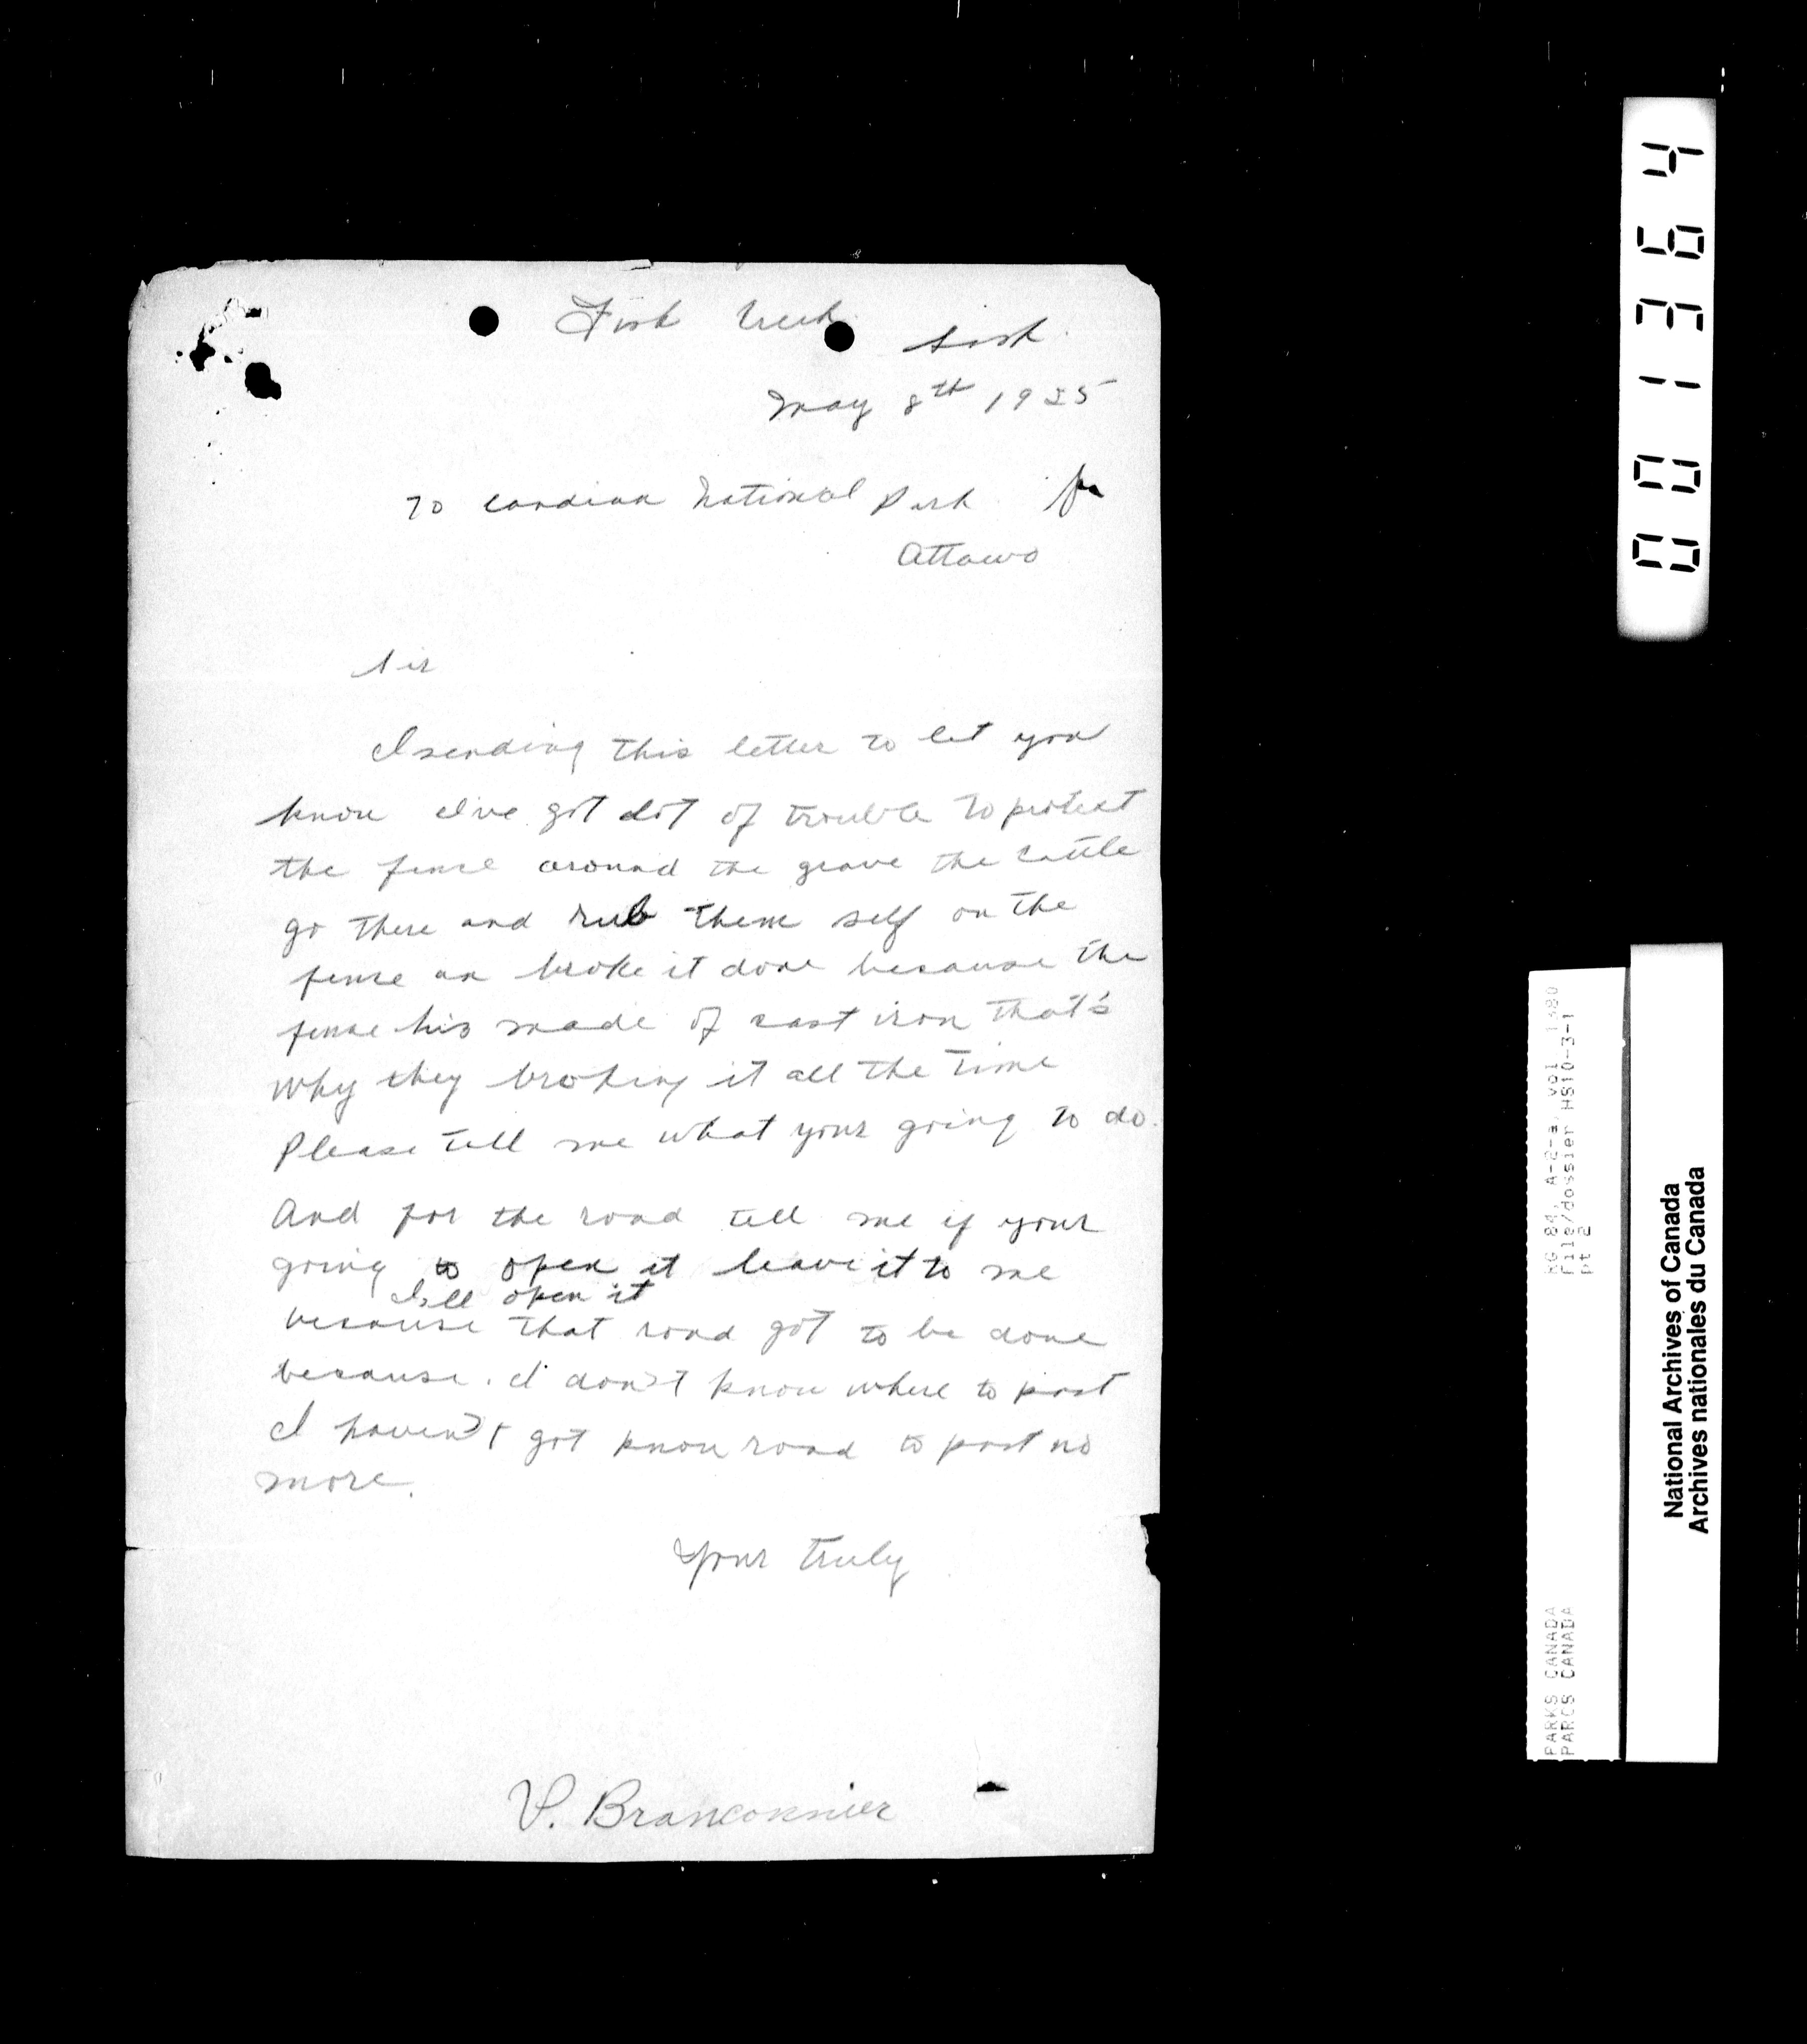 Fish Creek
Sask.
May 8th 1925
To Candian National Park
Attawo
Sir
I sending this letter to let you
know I've got lot of trouble to protect
the fense around the grave the cattle
go there and rub them self on the
fense an broke it done because the
fense his made of cast iron that's
why they broking it all the time
Please tell me what your going to do.
And for the road tell me if your
going to open it leave it to me
I'll open it
because that road got to be done
because. I don't know where to past
I haven't got know road to past no
more.
Your truly
P. Branconnier
001364
RG 84, A-2-a, vol 1380
File/dossier HS10-3-1
pt 2
PARKS CANADA
PARCS CANADA
National Archives of Canada
Archives nationales du Canada